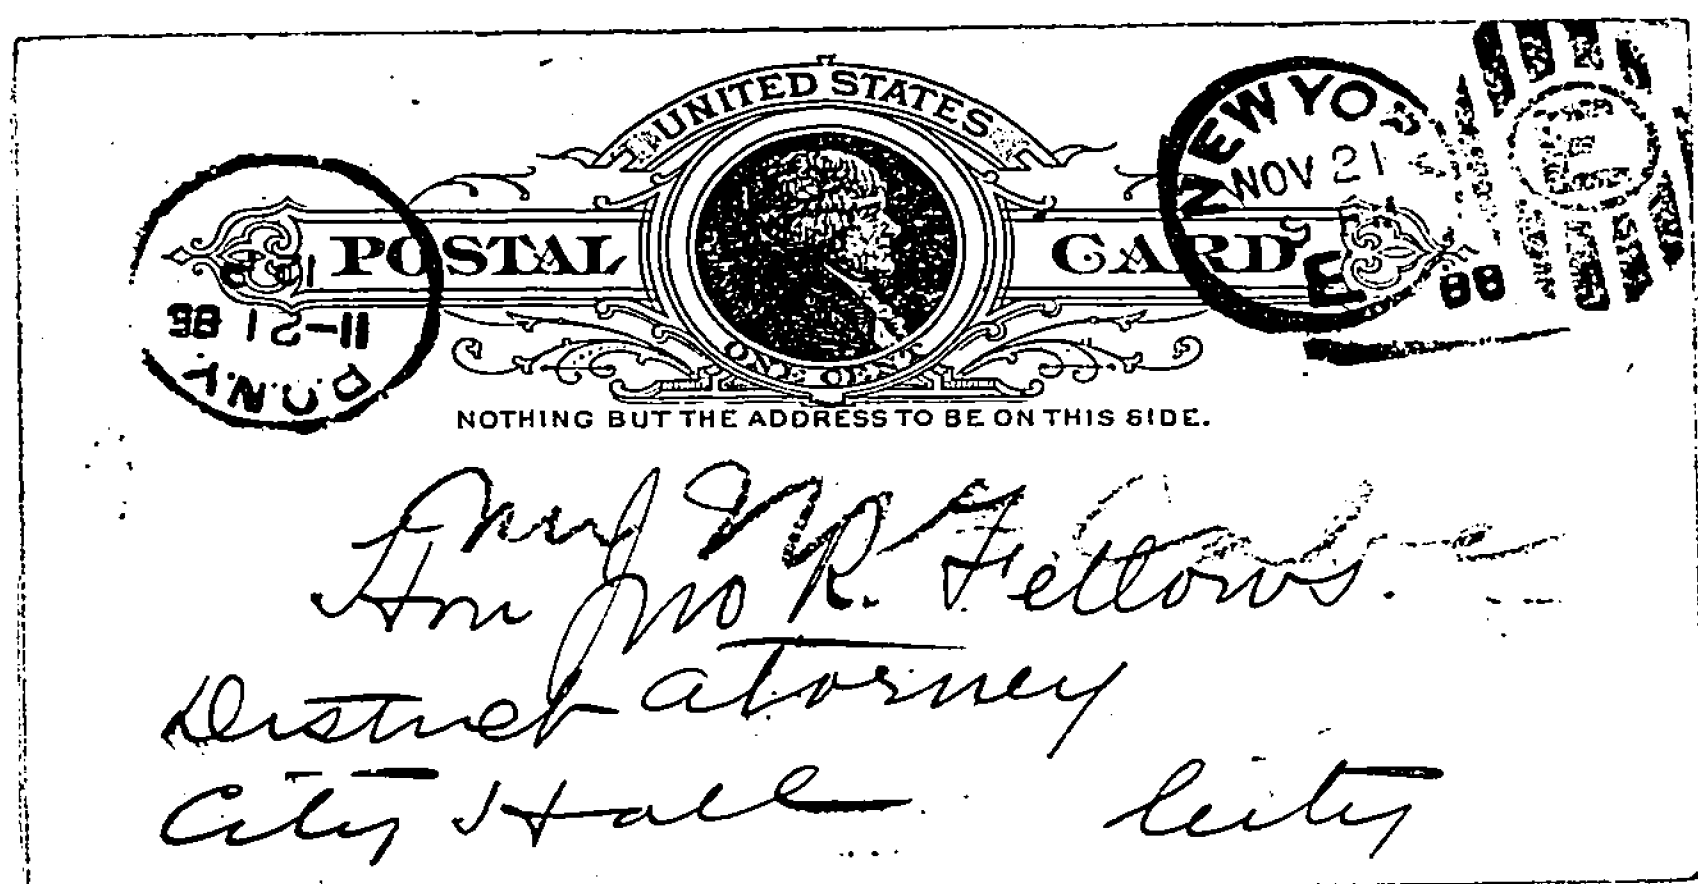 UNITED STATES
POSTAL CARD
ONE CENT
NEW YOR
NOV 21
E
88
11-21 88
P.O.N.Y.
NOTHING BUT THE ADDRESS TO BE ON THIS SIDE.
Hon Jno R. Fellows.
District attorney
City Hall City